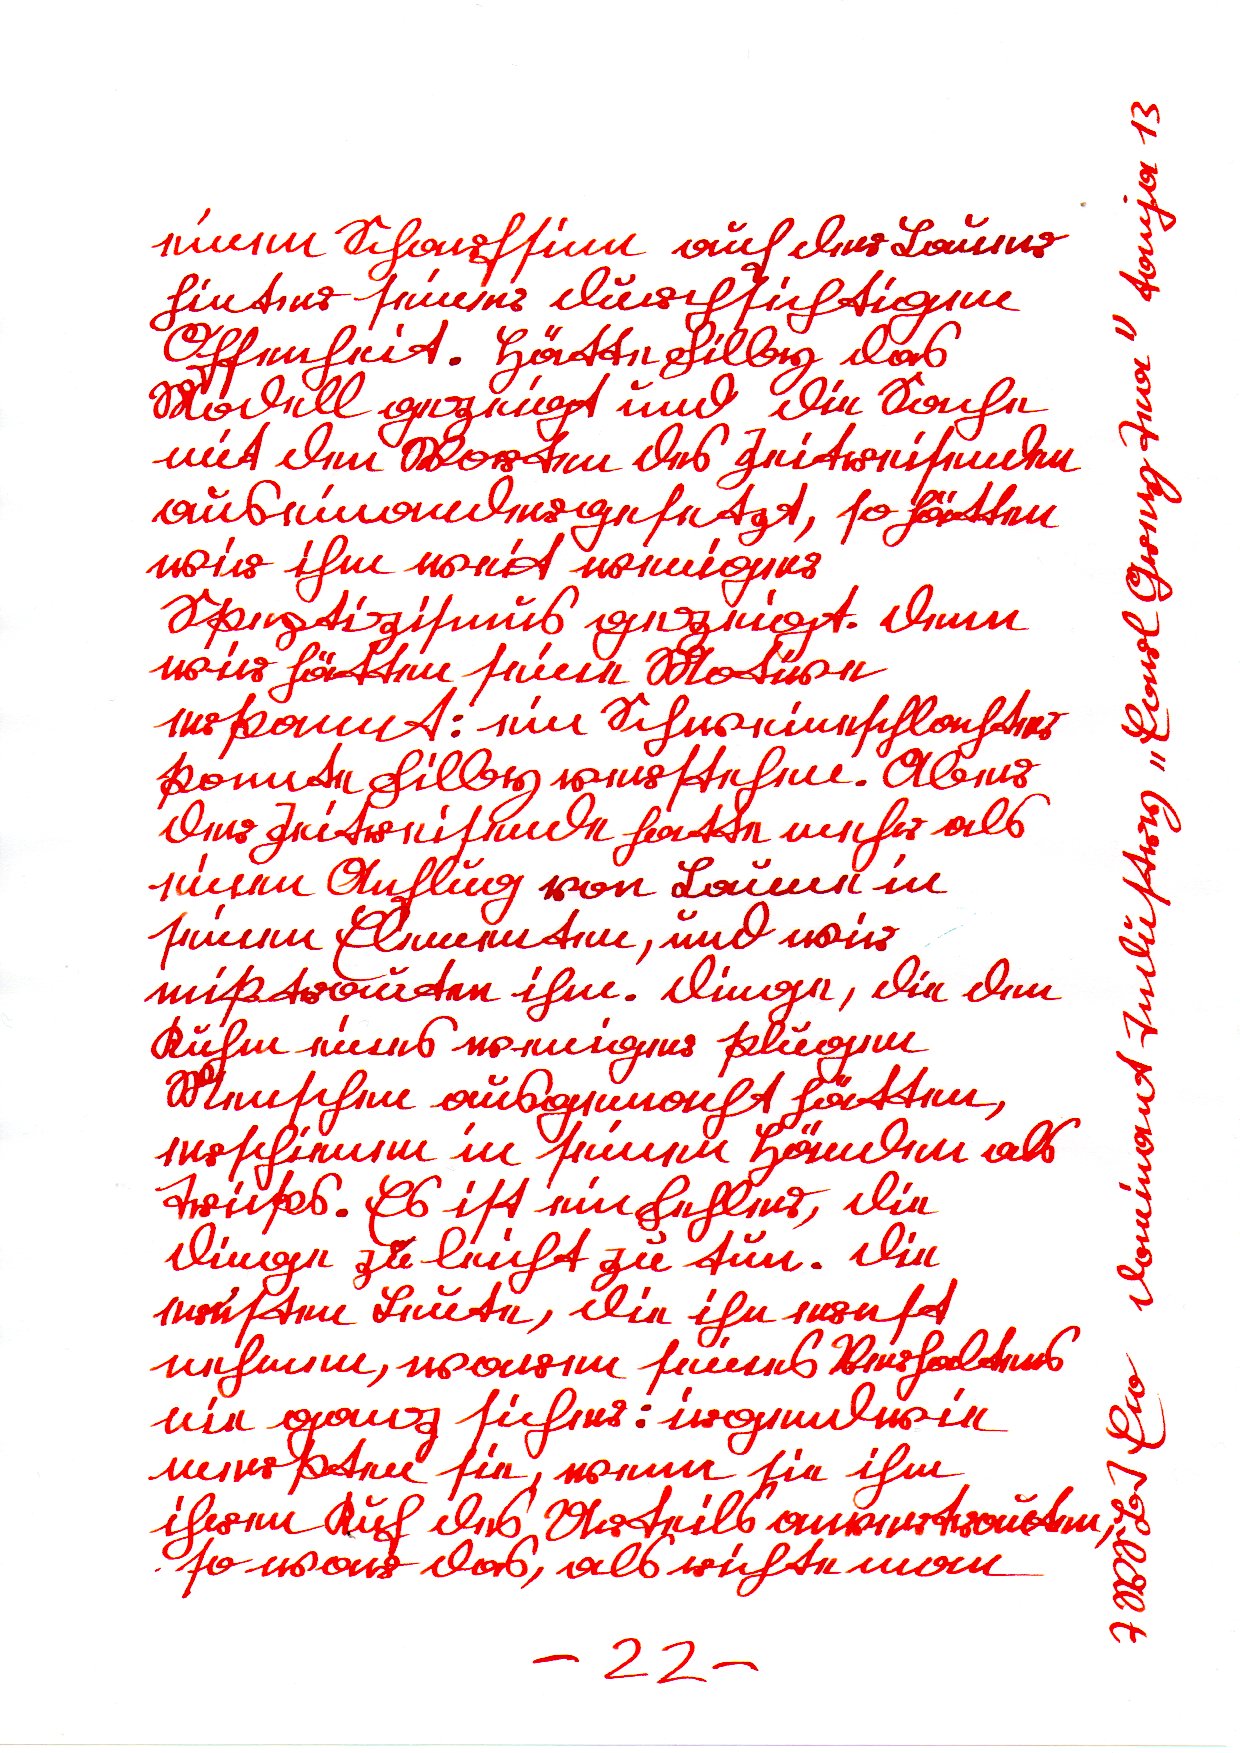 einem Scharfsinn auf der Lauer
hinter seiner durchsichtigen
Offenheit. Hätte Filby das
Modell gezeigt und die Sache
mit den Worten des Zeitreisenden
auseinandergesetzt, so hätten
wir ihm weit weniger
Skeptizismus gezeigt. Denn
wir hätten seine Motive
erkannt: ein Schweineschlachter
konnte Filby verstehen. Aber
der Zeitreisende hatte mehr als
einen Anflug von Launen in
seinen Elementen, und wir
mißtrauten ihm. Dinge, die den
Ruhm eines weniger klugen
Menschen ausgemacht hätten,
erschienen in seinen Händen als
Tricks. Es ist ein Fehler, die
Dinge zu leicht zu tun. Die
ernsten Leute, die ihn ernst
nehmen, waren seines Verhaltens
nie ganz sicher: irgendwie
merkten sie, wenn sie ihm
ihren Ruf des Urteils anvertrauten,
so war das, als richte man
- 22 -
Leo dominant Industry „Carl Georg " 13